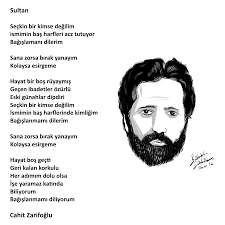 Sultan
Seçkin bir kimse değilim
ismimin baş harfleri acz tutuyor
Bağışlamanı dilerim
Sana zorsa bırak yanayım
Kolaysa esirgeme
Hayat bir boş rüyaymış
Geçen ibadetler özürlü
Eski günahlar dipdiri
Seçkin bir kimse değilim
İsmimin baş harflerinde kimliğim
Bağışlanmamı dilerim
Sana zorsa bırak yanayım
Kolaysa esirgeme
Hayat boş geçti
Geri kalan korkulu
Her adımım dolu olsa
İşe yaramaz katında
Biliyorum
Bağışlanmamı diliyorum
Cahit Zarifoğlu